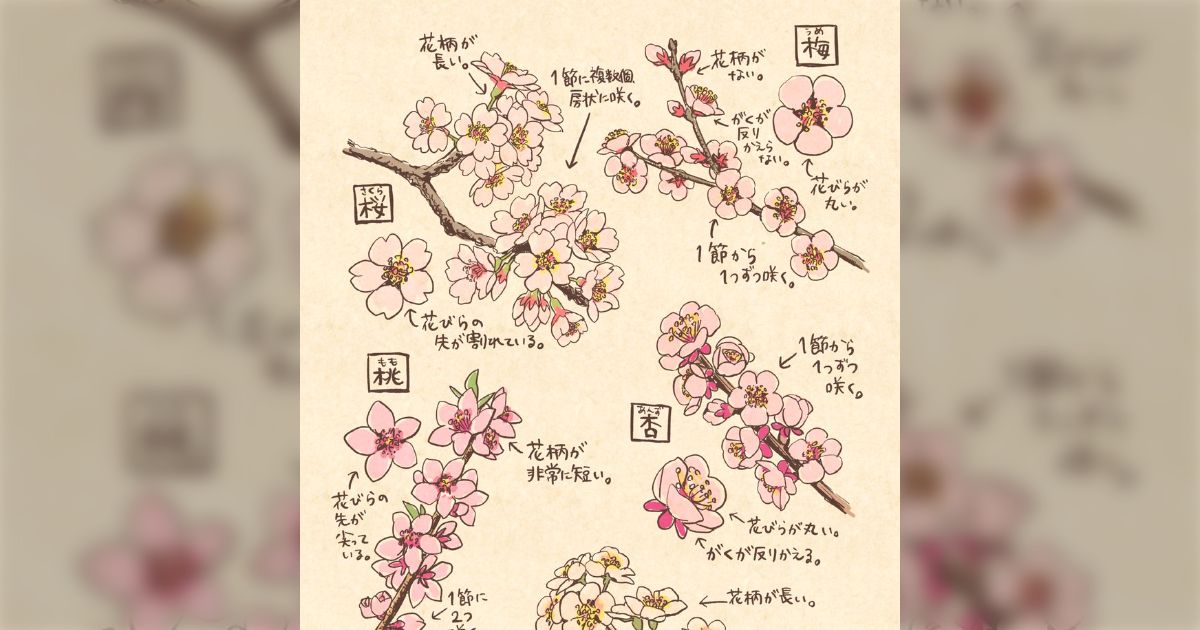 花柄が
長い。
1節に複数個
房状に咲く。
さくら
桜
花びらの
先が割れている。
うめ
梅
花柄が
ない。
がくが
反り
かえら
ない。
花びらが
丸い。
1節から
1つずつ咲く。
もも
桃
花柄が
非常に短い。
花びらの
先が
尖って
いる。
1節に
2つ
あんず
杏
1節から
1つずつ
咲く。
花びらが丸い。
がくが反りかえる。
花柄が長い。